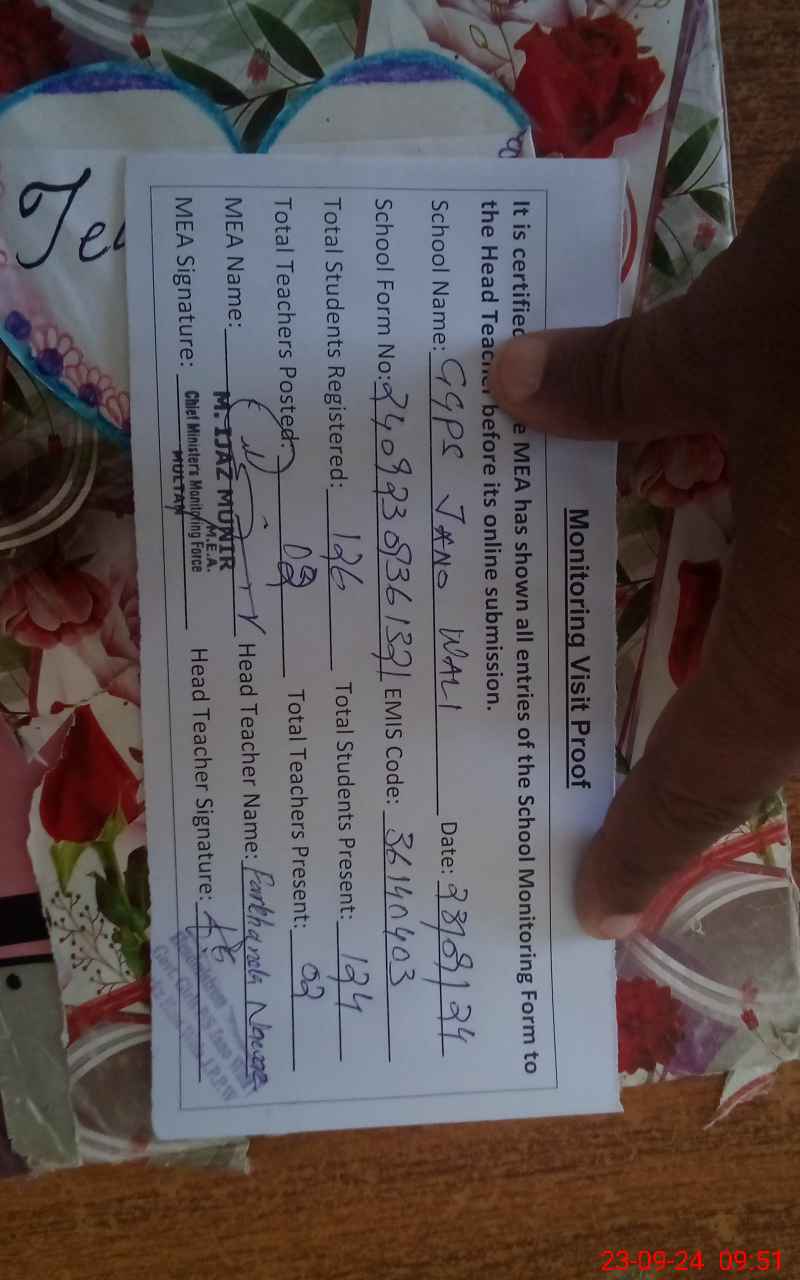 Monitoring Visit Proof
It is certified MEA has shown all entries of the School Monitoring Form to
the Head Teacher before its online submission.
School Name: GGPS JANO WALI Date: 23/09/24
School Form No: EMIS Code: 36140403
Total Students Registered: 126 Total Students Present: 124
Total Teachers Posted: 02 Total Teachers Present: 02
MEA Name: Head Teacher Name: Farkhanda
M. IJAZ MUNIR
M.E.A.
MEA Signature: Head Teacher Signature:
Chief Minister's Monitoring Force
MULTAN
Te
23-09-24 09:51